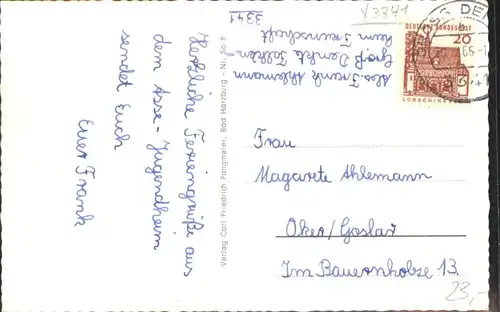 Herzliche Feriengrüße aus
dem Asse-Jugendheim
sendet Euch
Euer Frank
Verlag Carl Friedrich Fangmeier, Bad Harzburg - Nr. So 5
3341
Abs. Frank Ahlemann
Groß Denkte Falken-
heim Freundschaft
3341
DEUTSCHE BUNDESPOST
20
LORSCH/HESSEN
Frau
Magarete Ahlemann
Oker/Goslar
Im Bauernholze 13
23,-